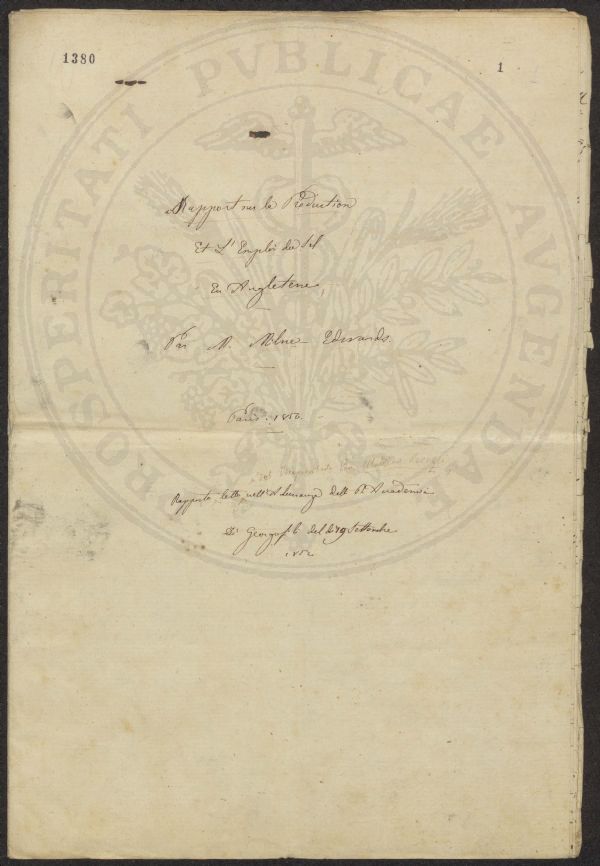 1380
1
PROSPERITATI PVBLICAE AVGENDAE
Rapport sur la Production
Et L'Emploi du Sel
En Angleterre,
Par M. Milne-Edwards.
Paris. 1850.
Rapporto letto nell'Adunanza
Di Georgof.li del dì 19 Settembre
1852